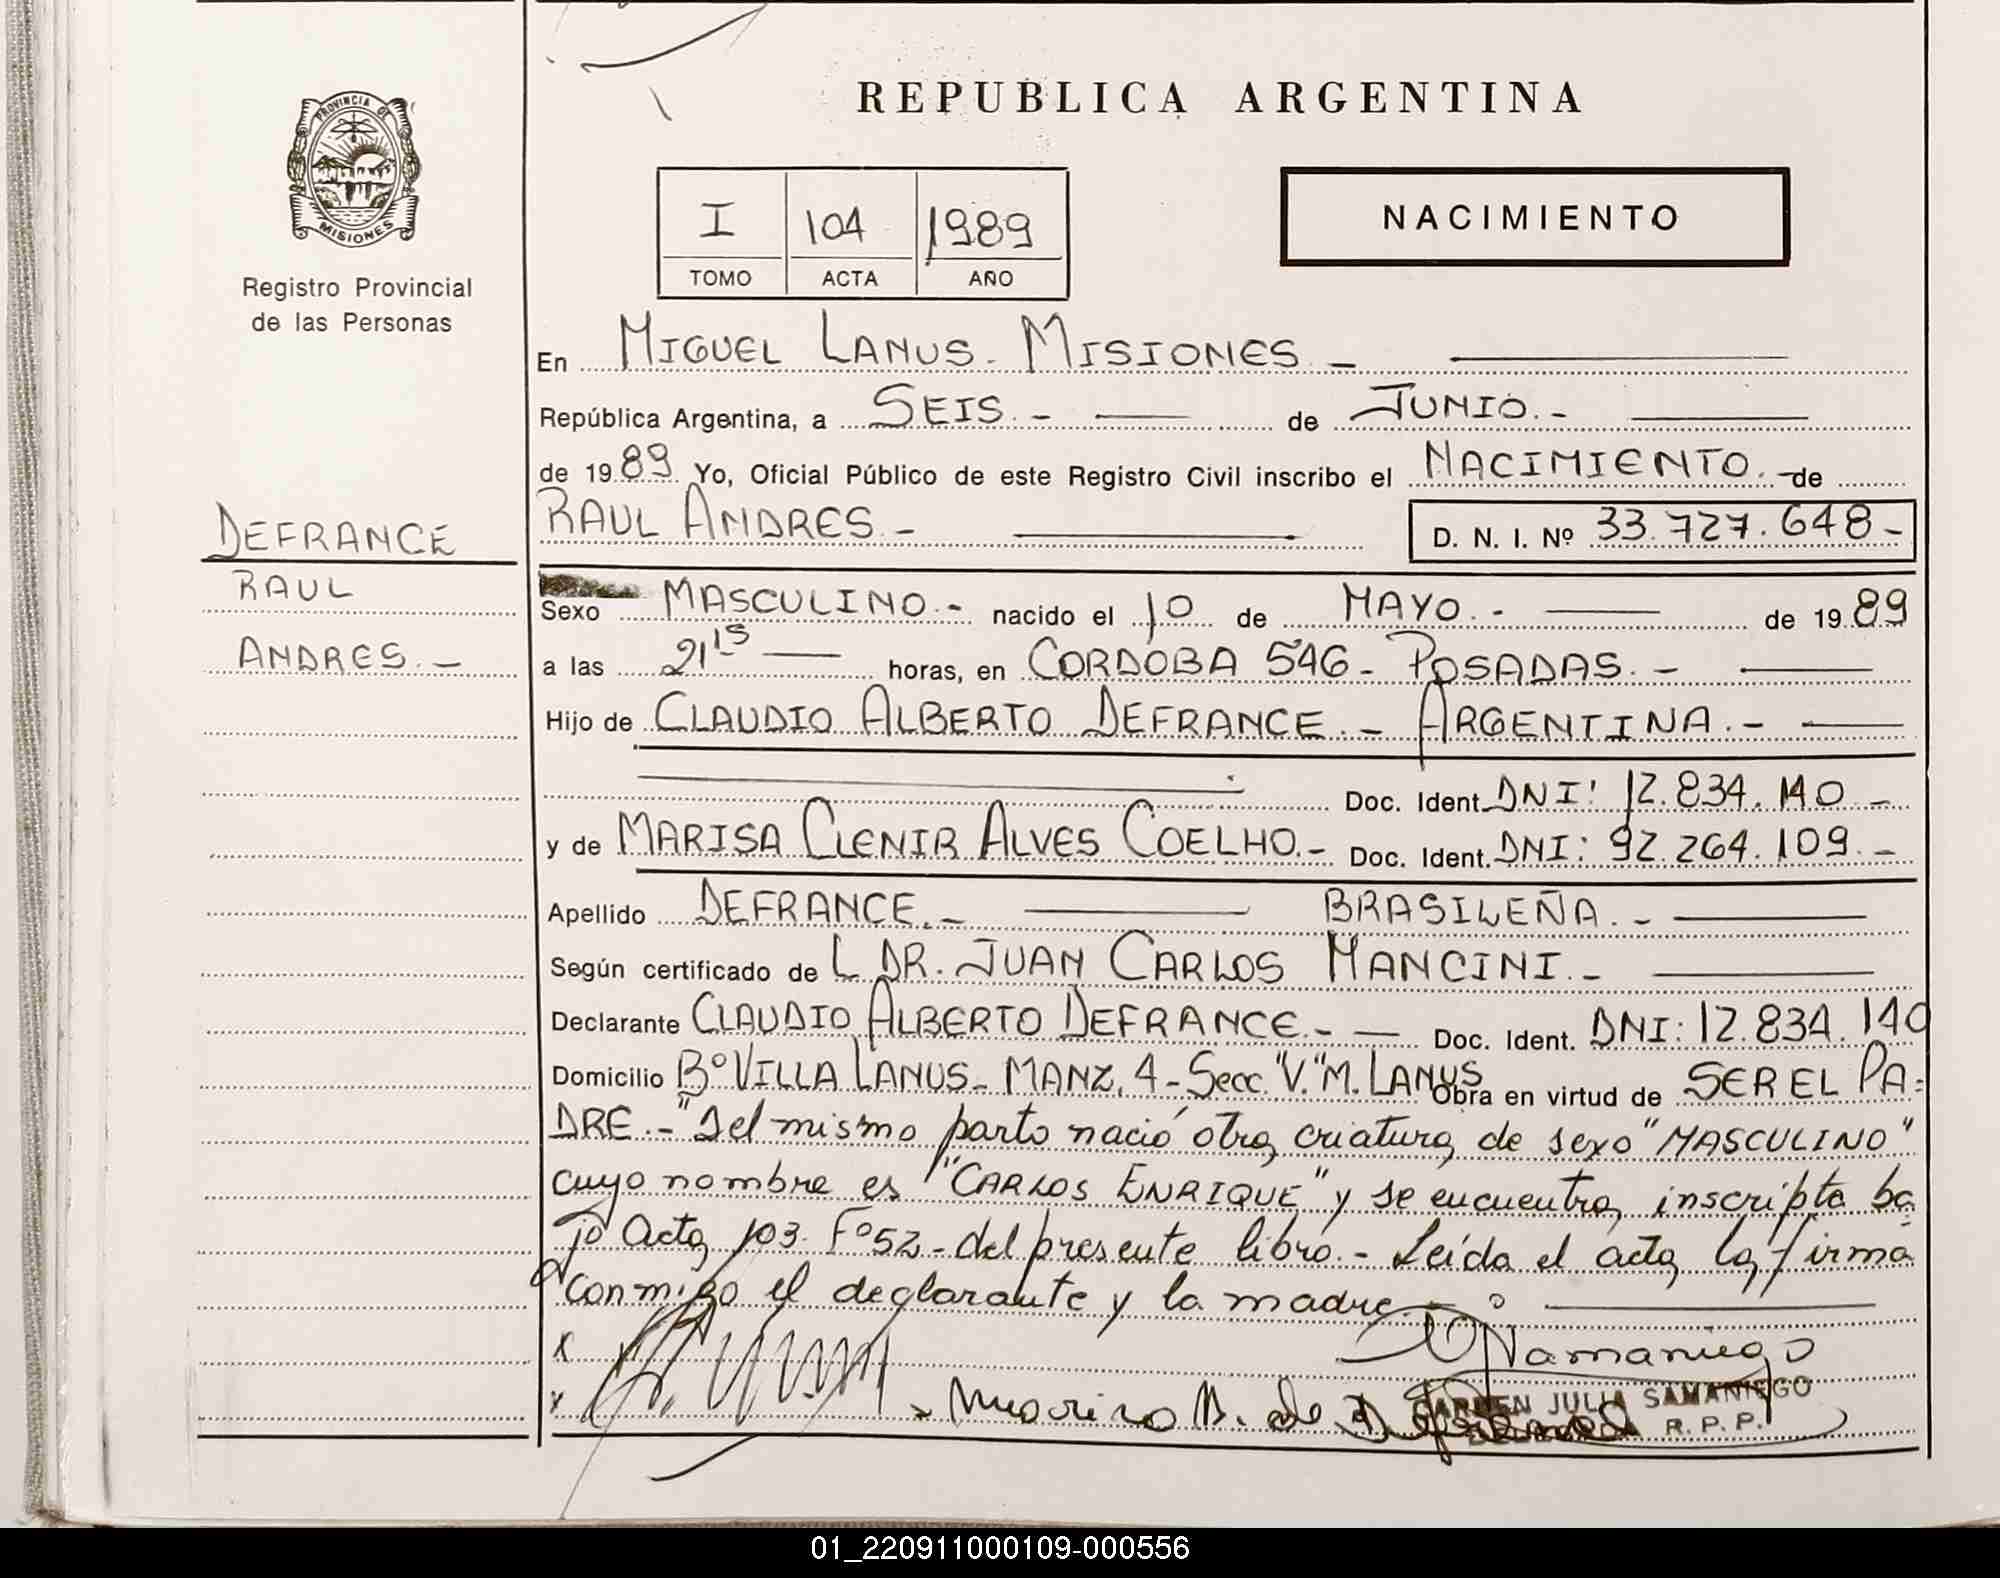 REPUBLICA ARGENTINA
PROVINCIA DE
MISIONES
Registro Provincial
de las Personas
I 104 1989
TOMO ACTA AÑO
NACIMIENTO
En MIGUEL LANUS - MISIONES -
República Argentina, a SEIS.- de JUNIO.-
de 1989 Yo, Oficial Público de este Registro Civil inscribo el NACIMIENTO.- de
RAUL ANDRES.- D. N. I. Nº 33.727.648-
DEFRANCE
RAUL
ANDRES.-
Sexo MASCULINO.- nacido el 10 de MAYO.- de 1989
a las 21 15 horas, en CORDOBA 546 - POSADAS.-
Hijo de CLAUDIO ALBERTO DEFRANCE.- ARGENTINA.-
Doc. Ident. DNI: 12.834.140-
y de MARISA CLENIR ALVES COELHO.- Doc. Ident. DNI: 92.264.109.-
Apellido DEFRANCE.- BRASILEÑA.-
Según certificado de L DR. JUAN CARLOS MANCINI.-
Declarante CLAUDIO ALBERTO DEFRANCE.- Doc. Ident. DNI: 12.834.140
Domicilio Bº VILLA LANUS - MANZ. 4 - Secc. "V." M. LANUS Obra en virtud de SER EL PA=
DRE.- "Del mismo parto nació otra criatura de sexo "MASCULINO"
cuyo nombre es "CARLOS ENRIQUE" y se encuentra inscripta ba=
jo Acta 103 Fº 52 - del presente libro.- Leída el acta la firma
conmigo el declarante y la madre.-
x
x
Samaniego
CARMEN JULIA SAMANIEGO
R. P. P.
01_220911000109-000556